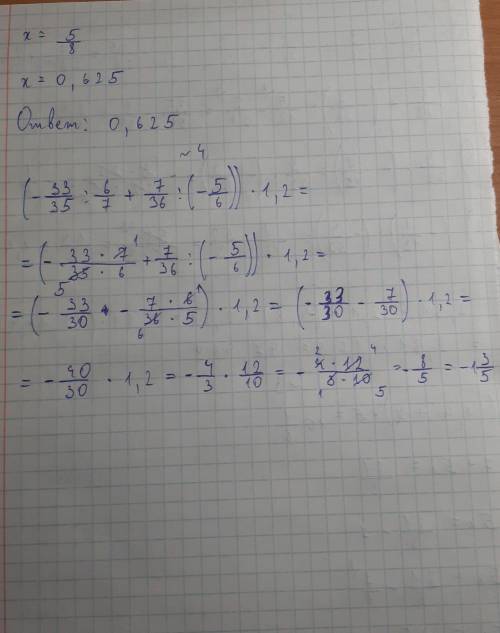 x = 5/8
x = 0,625
Ответ: 0,625
~4
(- 33/35 : 6/7 + 7/36 : (- 5/6)) · 1,2 =
= (- 33 · 7 1/35 · 6 5 + 7/36 : (- 5/6)) · 1,2 =
= (- 33/30 - 7 · 6 1/36 · 5 6) · 1,2 = (- 33/30 - 7/30) · 1,2 =
= - 40/30 · 1,2 = - 4/3 · 12/10 = - 2 4 · 12 4/1 3 · 10 5 = - 8/5 = -1 3/5